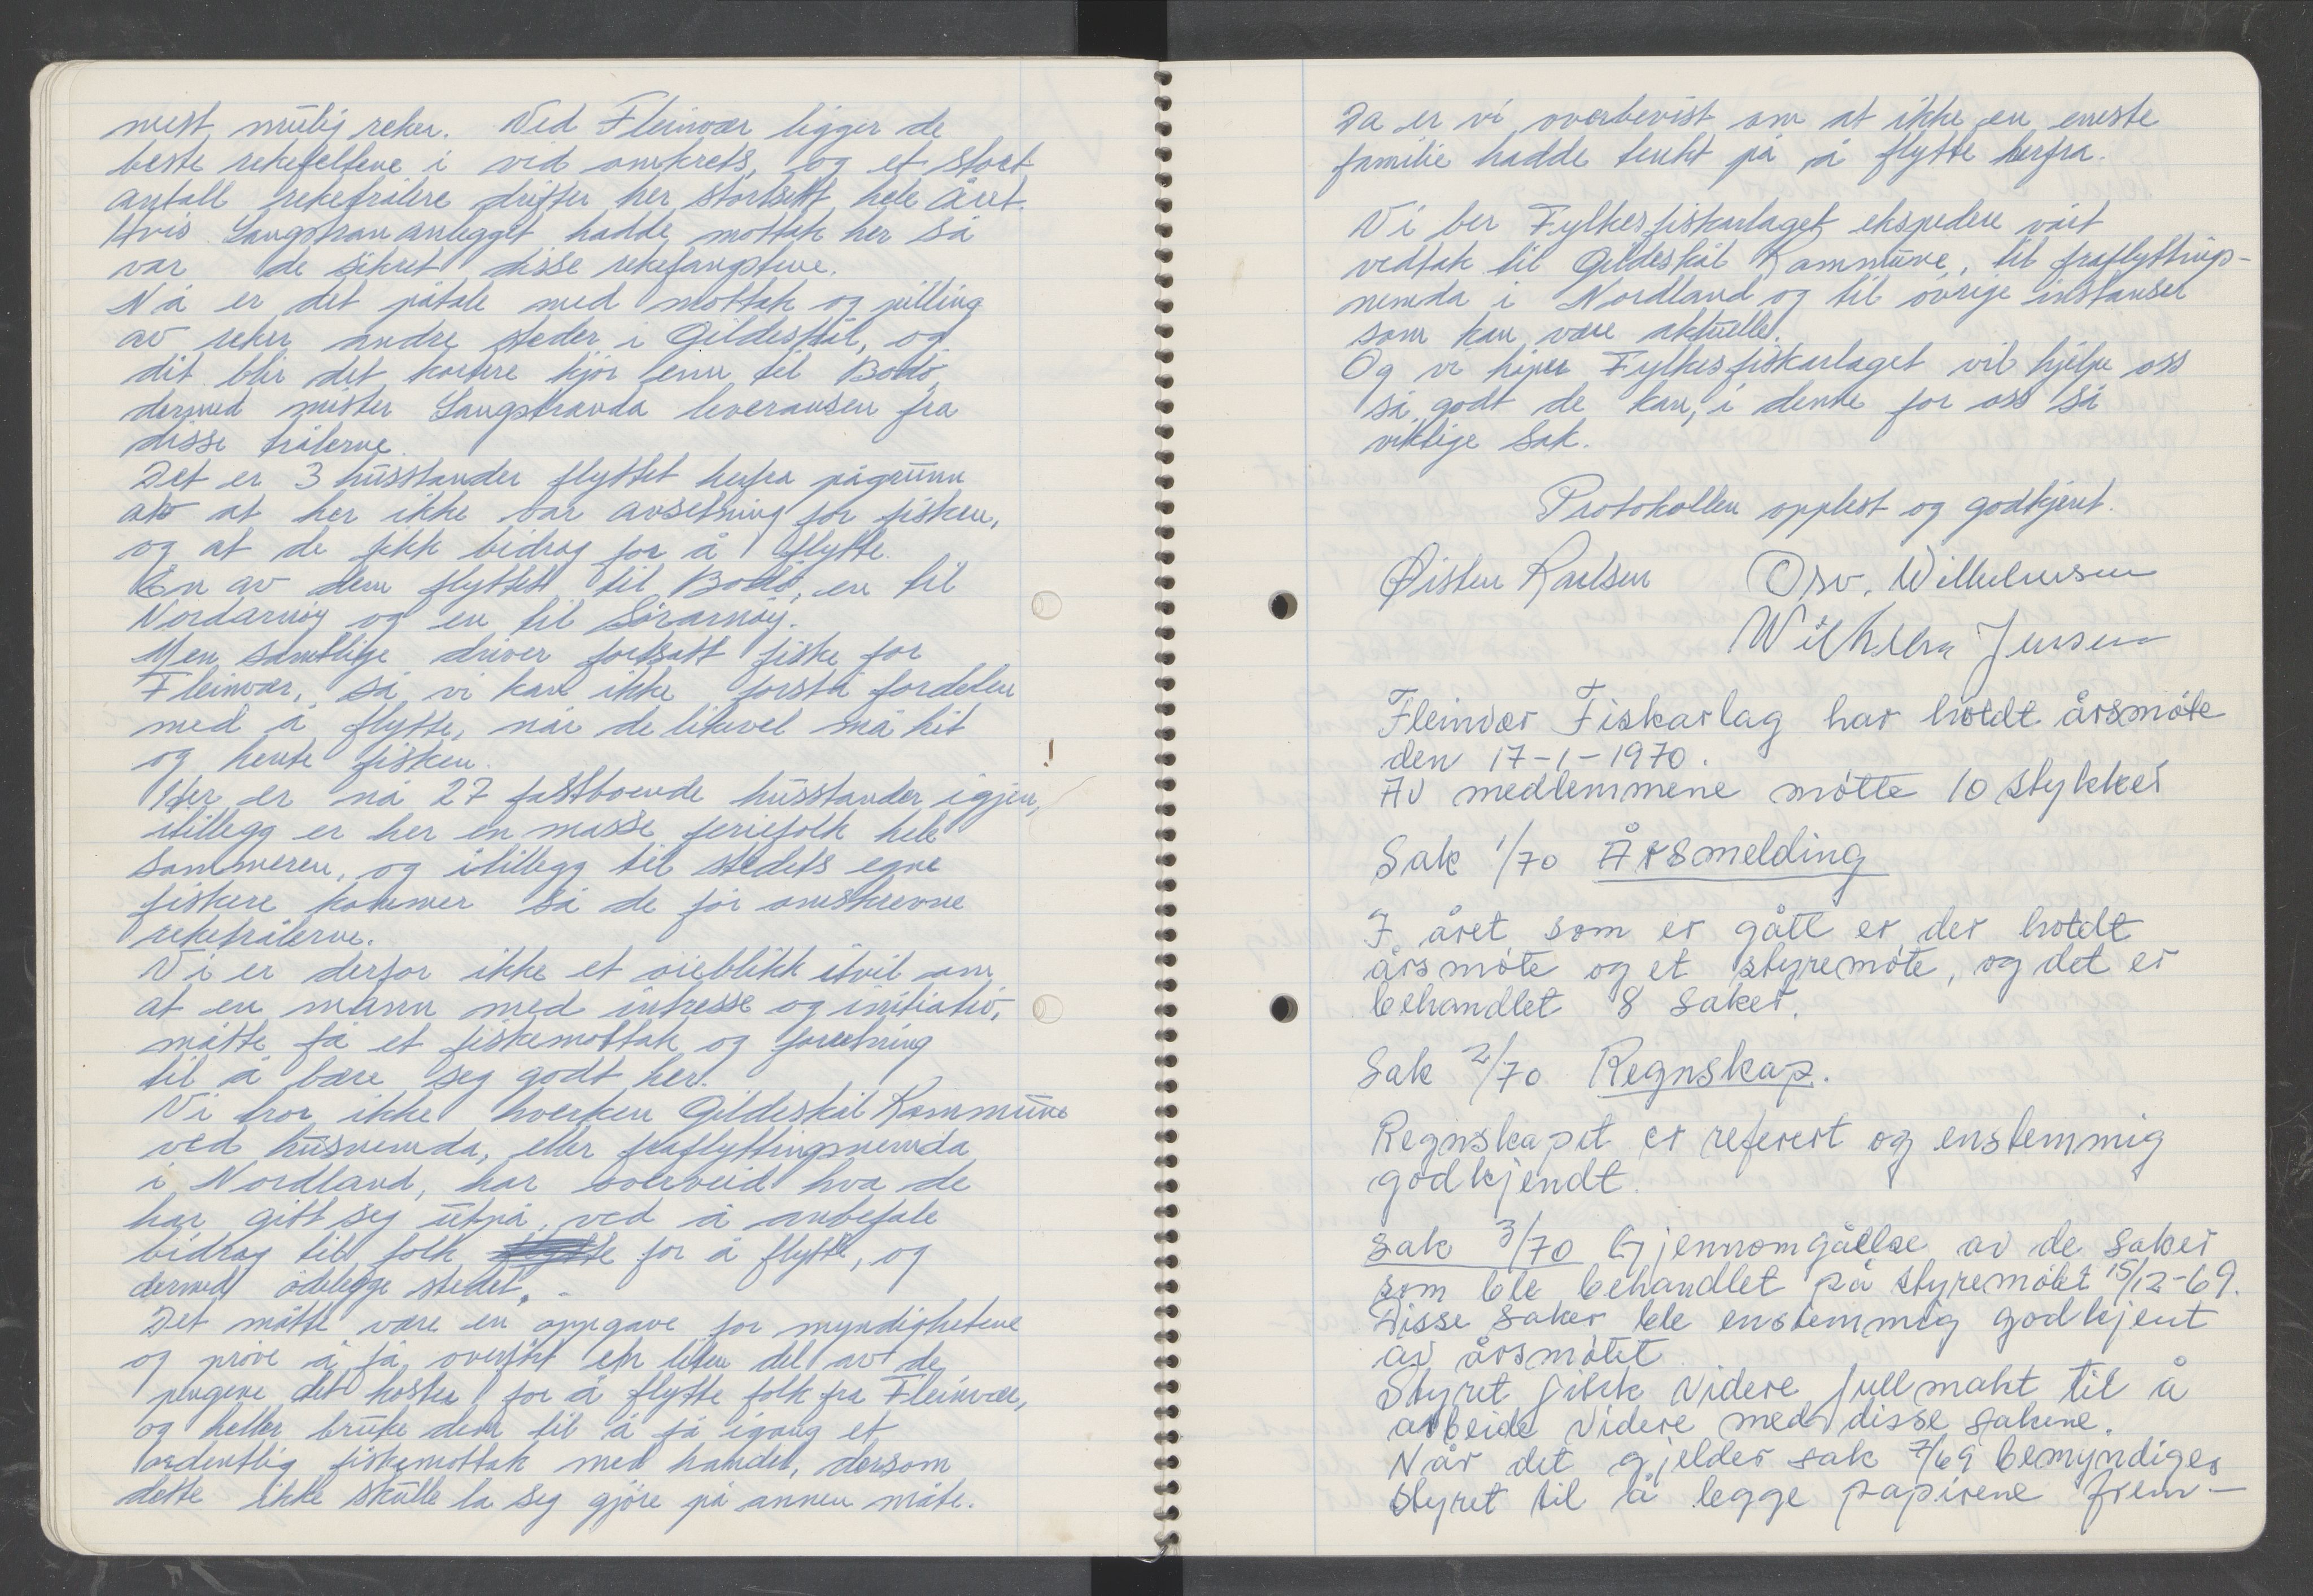 mest mulig reker. Ved Fleinvær ligger de
beste rekefeltene i vid omkrets, og et stort
antall reketrålere drifter her stortsett hele året.
Hvis Langstrananlegget hadde mottak her så
var de sikret disse rekefangstene.
Nå er det påtale med mottak og pilling
av reker andre steder i Gildeskål, og
dit blir det kortere kjør enn til Bodö,
dermed mister Langstranda leveransen fra
disse trålerne.
Det er 3 husstander flyttet herfra pågrunn
av at her ikke var avsetning for fisken,
og at de fikk bidrag for å flytte.
En av dem flyttet til Bodö, en til
Nordarnöy og en til Sörarnöy.
Men samtlige driver fortsatt fiske for
Fleinvær, så vi kan ikke forstå fordelen
med å flytte, når de likevel må hit
og hente fisken.
Her er nå 27 fastboende husstander igjen,
itillegg er her en masse feriefolk hele
sommeren, og itillegg til stedets egne
fiskere kommer så de för omskrevne
reketrålerne.
Vi er derfor ikke et öieblikk itvil om
at en mann med intresse og initiativ,
måtte få et fiskemottak og forretning
til å bære seg godt her.
Vi tror ikke hverken Gildeskål Kommune
ved husnemda, eller fraflyttingsnemda
i Nordland, har overveid hva de
har gitt seg utpå, ved å anbefale
bidrag til folk for å flytte, og
dermed ödelegge stedet.
Det måtte være en oppgave for myndighetene
og pröve å få overfört en liten del av de
pengene det koster for å flytte folk fra Fleinvær,
og heller bruke dem til å få igang et
ordentlig fiskemottak med handel, dersom
dette ikke skulle la seg gjöre på annen måte.
Da er vi overbevist om at ikke en eneste
familie hadde tenkt på å flytte herfra.
Vi ber Fylkesfiskarlaget ekspedere vårt
vedtak til Gildeskål Kommune, til fraflyttings-
nemda i Nordland og til övrige instanser
som kan være aktuelle.
Og vi håper Fylkesfiskarlaget vil hjelpe oss
så godt de kan, i denne for oss så
viktige sak.
Protokollen opplest og godkjent.
Øisten Karlsen Osv. Wilhelmsen
Wilhelm Jensen
Fleinvær Fiskarlag har holdt årsmöte
den 17-1-1970.
AV medlemmene mötte 10 stykker
Sak 1/70 Årsmelding
I året som er gått er der holdt
årsmöte og et styremöte, og det er
behandlet 8 saker.
Sak 2/70 Regnskap.
Regnskapet er referert og enstemmig
godkjendt.
Sak 3/70 Gjennomgåelse av de saker
som ble behandlet på styremötet 15/12-69.
Disse saker ble enstemmig godkjent
av årsmötet.
Styret fikk videre fullmakt til å
arbeide videre med disse sakene.
Når det gjelder sak 7/69 bemyndiges
styret til å legge papirene frem-